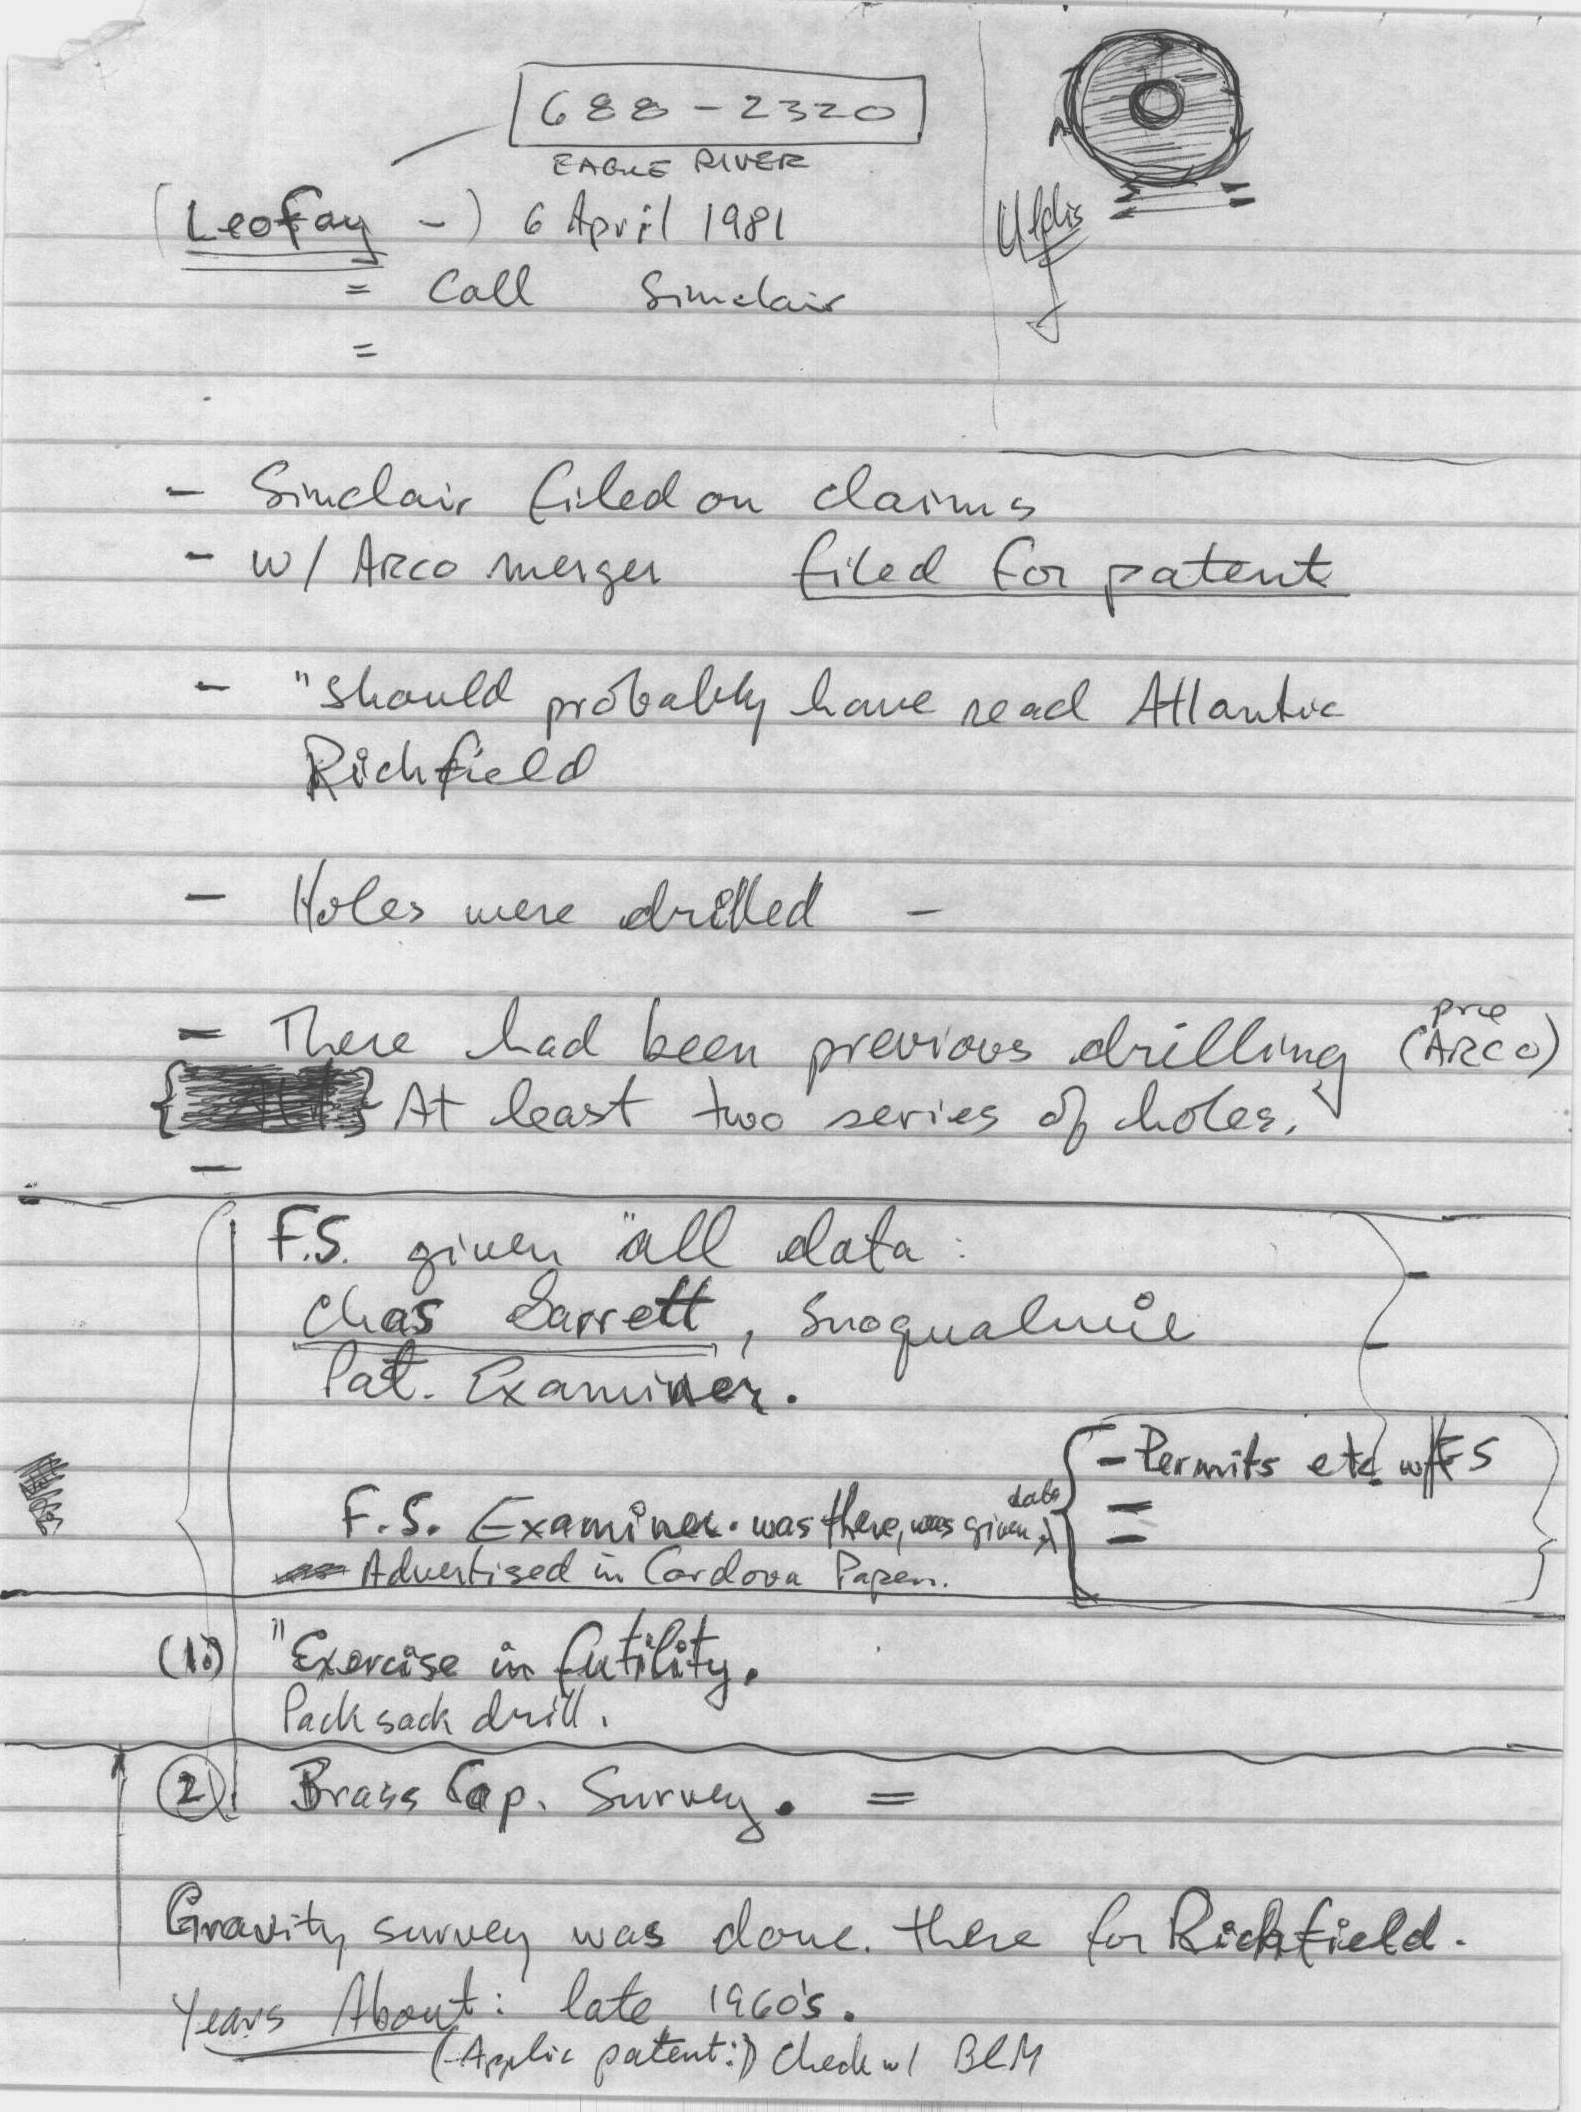 688-2320
EAGLE RIVER
(Leo Fay -) 6 April 1981
= Call Sinclair
=
- Sinclair filed on claims
- w/ ARCO merger filed for patent
- "should probably have read Atlantic
Richfield
- Holes were drilled -
- There had been previous drilling (pre ARCO)
At least two series of holes.
-
F.S. given "all data:
Chas Garrett, Snoqualmie
Pat. Examiner.
- Permits etc w/ FS
F.S. Examiner. was there, was given data
Advertised in Cordova Paper.
(1.) "Exercise in futility.
Packsack drill.
(2) Brass Cap. Survey. =
Gravity survey was done. there for Richfield.
Years About: late 1960's.
(Applic patent:) Check w/ BLM